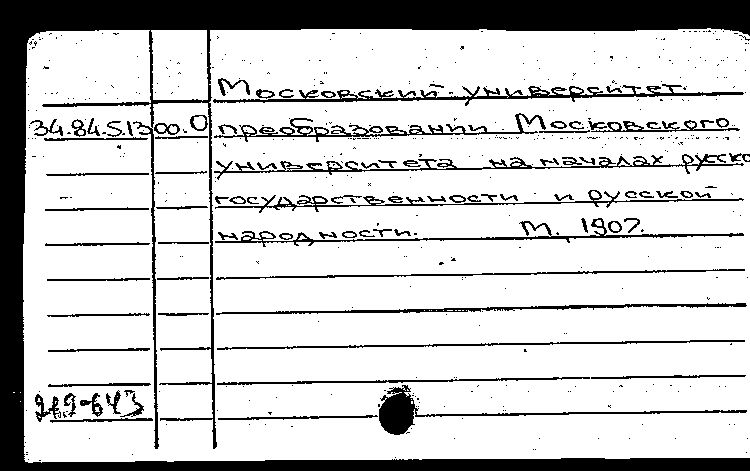 Московский университет.
34.84.5.13 00.О преобразовании Московского
университета на началах русско
государственности и русской
народности. М., 1907.